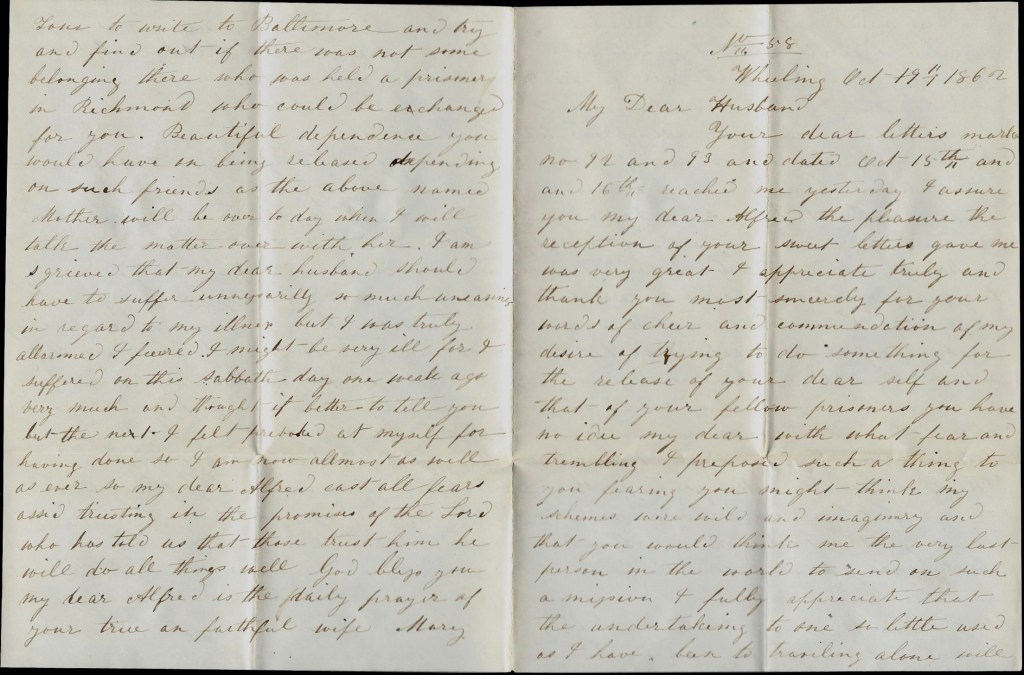 No 58
Wheeling Oct 19th 1862
My Dear Husband
Your dear letters mark
no 92 and 93 and dated Oct 15th and
and 16th reached me yesterday I assure
you my dear Alfred the pleasure the
reception of your sweet letters gave me
was very great I appreciate truly and
thank you most sincerely for your
words of cheer and commendation of my
desire of trying to do something for
the release of your dear self and
that of your fellow prisoners you have
no idea my dear with what fear and
trembling I proposed such a thing to
you fearing you might think my
schemes were wild and imaginary and
that you would think me the very last
person in the world to send on such
a mission I fully appreciate that
the undertaking to one so little used
as I have been to traviling alone will
Tous to write to Baltimore and try
and find out if there was not some
belonging there who was held a prisoner
in Richmond who could be exchanged
for you. Beautiful dependence you
would have on being released depending
on such friends as the above named
Mother will be over to day when I will
talk the matter over with her. I am
grieved that my dear husband should
have to suffer unnesarily so much uneasiness
in regard to my illness but I was truly
allarmed I feered I might be very ill for I
suffered on this Sabbath day one weak ago
very much and thought it better to tell you
but the next I felt at myself for
having done so I am now allmost as well
as ever so my dear Alfred cast all fears
asid trusting in the promises of the Lord
who has told us that those trust him he
will do all things well God bless you
my dear Alfred is the daily prayer of
your true an faithful wife Mary